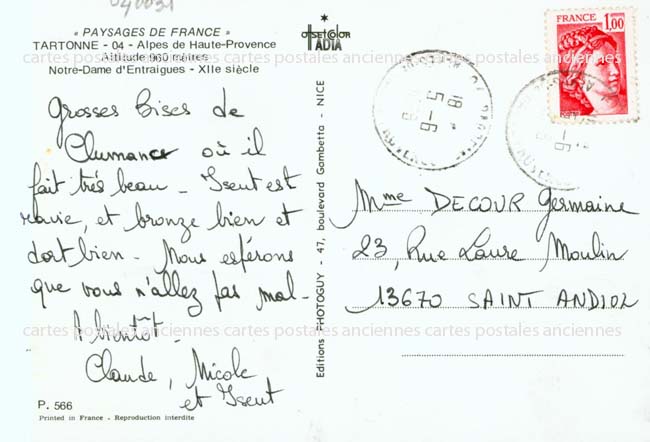 040031
« PAYSAGES DE FRANCE »
TARTONNE - 04 - Alpes de Haute-Provence
Altitude 960 mètres
Notre-Dame d'Entraigues - XIIe siècle
OFFSETCOLOR
ADIA
FRANCE 1,00
18
5-6
Grosses bises de
Clumanc où il
fait très beau - Iseut est
ravie, et bronze bien et
dort bien - Nous espérons
que vous n'allez pas mal -
A bientôt -
Claude, Nicole
et Iseut
Mme DECOUR Germaine
23, Rue Laure Moulin
13670 SAINT ANDIOL
Editions PHOTOGUY - 47, boulevard Gambetta - NICE
cartes postales anciennes cartes postales anciennes cartes postales anciennes
P. 566
Printed in France - Reproduction interdite